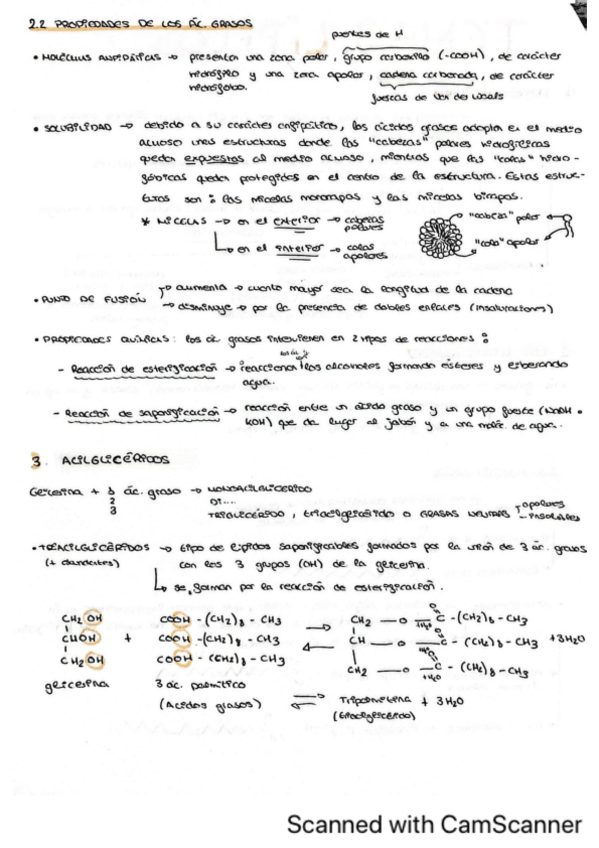 2.2 PROPIEDADES DE LOS ÁC. GRASOS
puentes de H
• MOLÉCULAS ANFIPÁTICAS → presentan una zona polar, grupo carboxilo (-COOH), de carácter
hidrófilo y una zona apolar, cadena carbonada, de carácter
hidrófobo.
fuerzas de Van der Waals
• SOLUBILIDAD → debido a su carácter anfipático, los ácidos grasos adoptan en el medio
acuoso unas estructuras donde las "cabezas" polares hidrofílicas
quedan expuestas al medio acuoso, mientras que las "colas" hidro-
fóbicas quedan protegidas en el centro de la estructura. Estas estruc-
turas son: las micelas monocapas y las micelas bicapas.
* MICELAS → en el exterior → cabezas polares
"cabeza" polar
↳ en el interior → colas apolares
"cola" apolar
• PUNTO DE FUSIÓN → aumenta → cuanto mayor sea la longitud de la cadena
→ disminuye → por la presencia de dobles enlaces (insaturaciones)
• PROPIEDADES QUÍMICAS: los ác grasos intervienen en 2 tipos de reacciones:
- Reacción de esterificación → reaccionan los alcoholes formando ésteres y liberando
agua.
- Reacción de saponificación → reacción entre un ácido graso y un grupo fuerte (NaOH o
KOH) que da lugar al jabón y a una moléc. de agua.
3. ACILGLICÉRIDOS
Glicerina + 1 ác. graso → MONOACILGLICÉRIDO
2 DI....
3 TRIGLICÉRIDO, triacilglicérido o GRASAS NEUTRAS → apolares
→ insolubles
• TRIACILGLICÉRIDOS → tipo de lípidos saponificables formados por la unión de 3 ác. grasos
(+ abundantes) con los 3 grupos (OH) de la glicerina.
↳ se forman por la reacción de esterificación.
CH2 OH COOH - (CH2)8 - CH3 → CH2 — O — C - (CH2)8 - CH3
CHOH + COOH - (CH2)8 - CH3 ← CH — O — C - (CH2)8 - CH3 + 3H2O
CH2 OH COOH - (CH2)8 - CH3 CH2 — O — C - (CH2)8 - CH3
glicerina 3 ác. palmítico
(Ácidos grasos) ⇌ Tripalmitina + 3H2O
(triacilglicérido)
Scanned with CamScanner